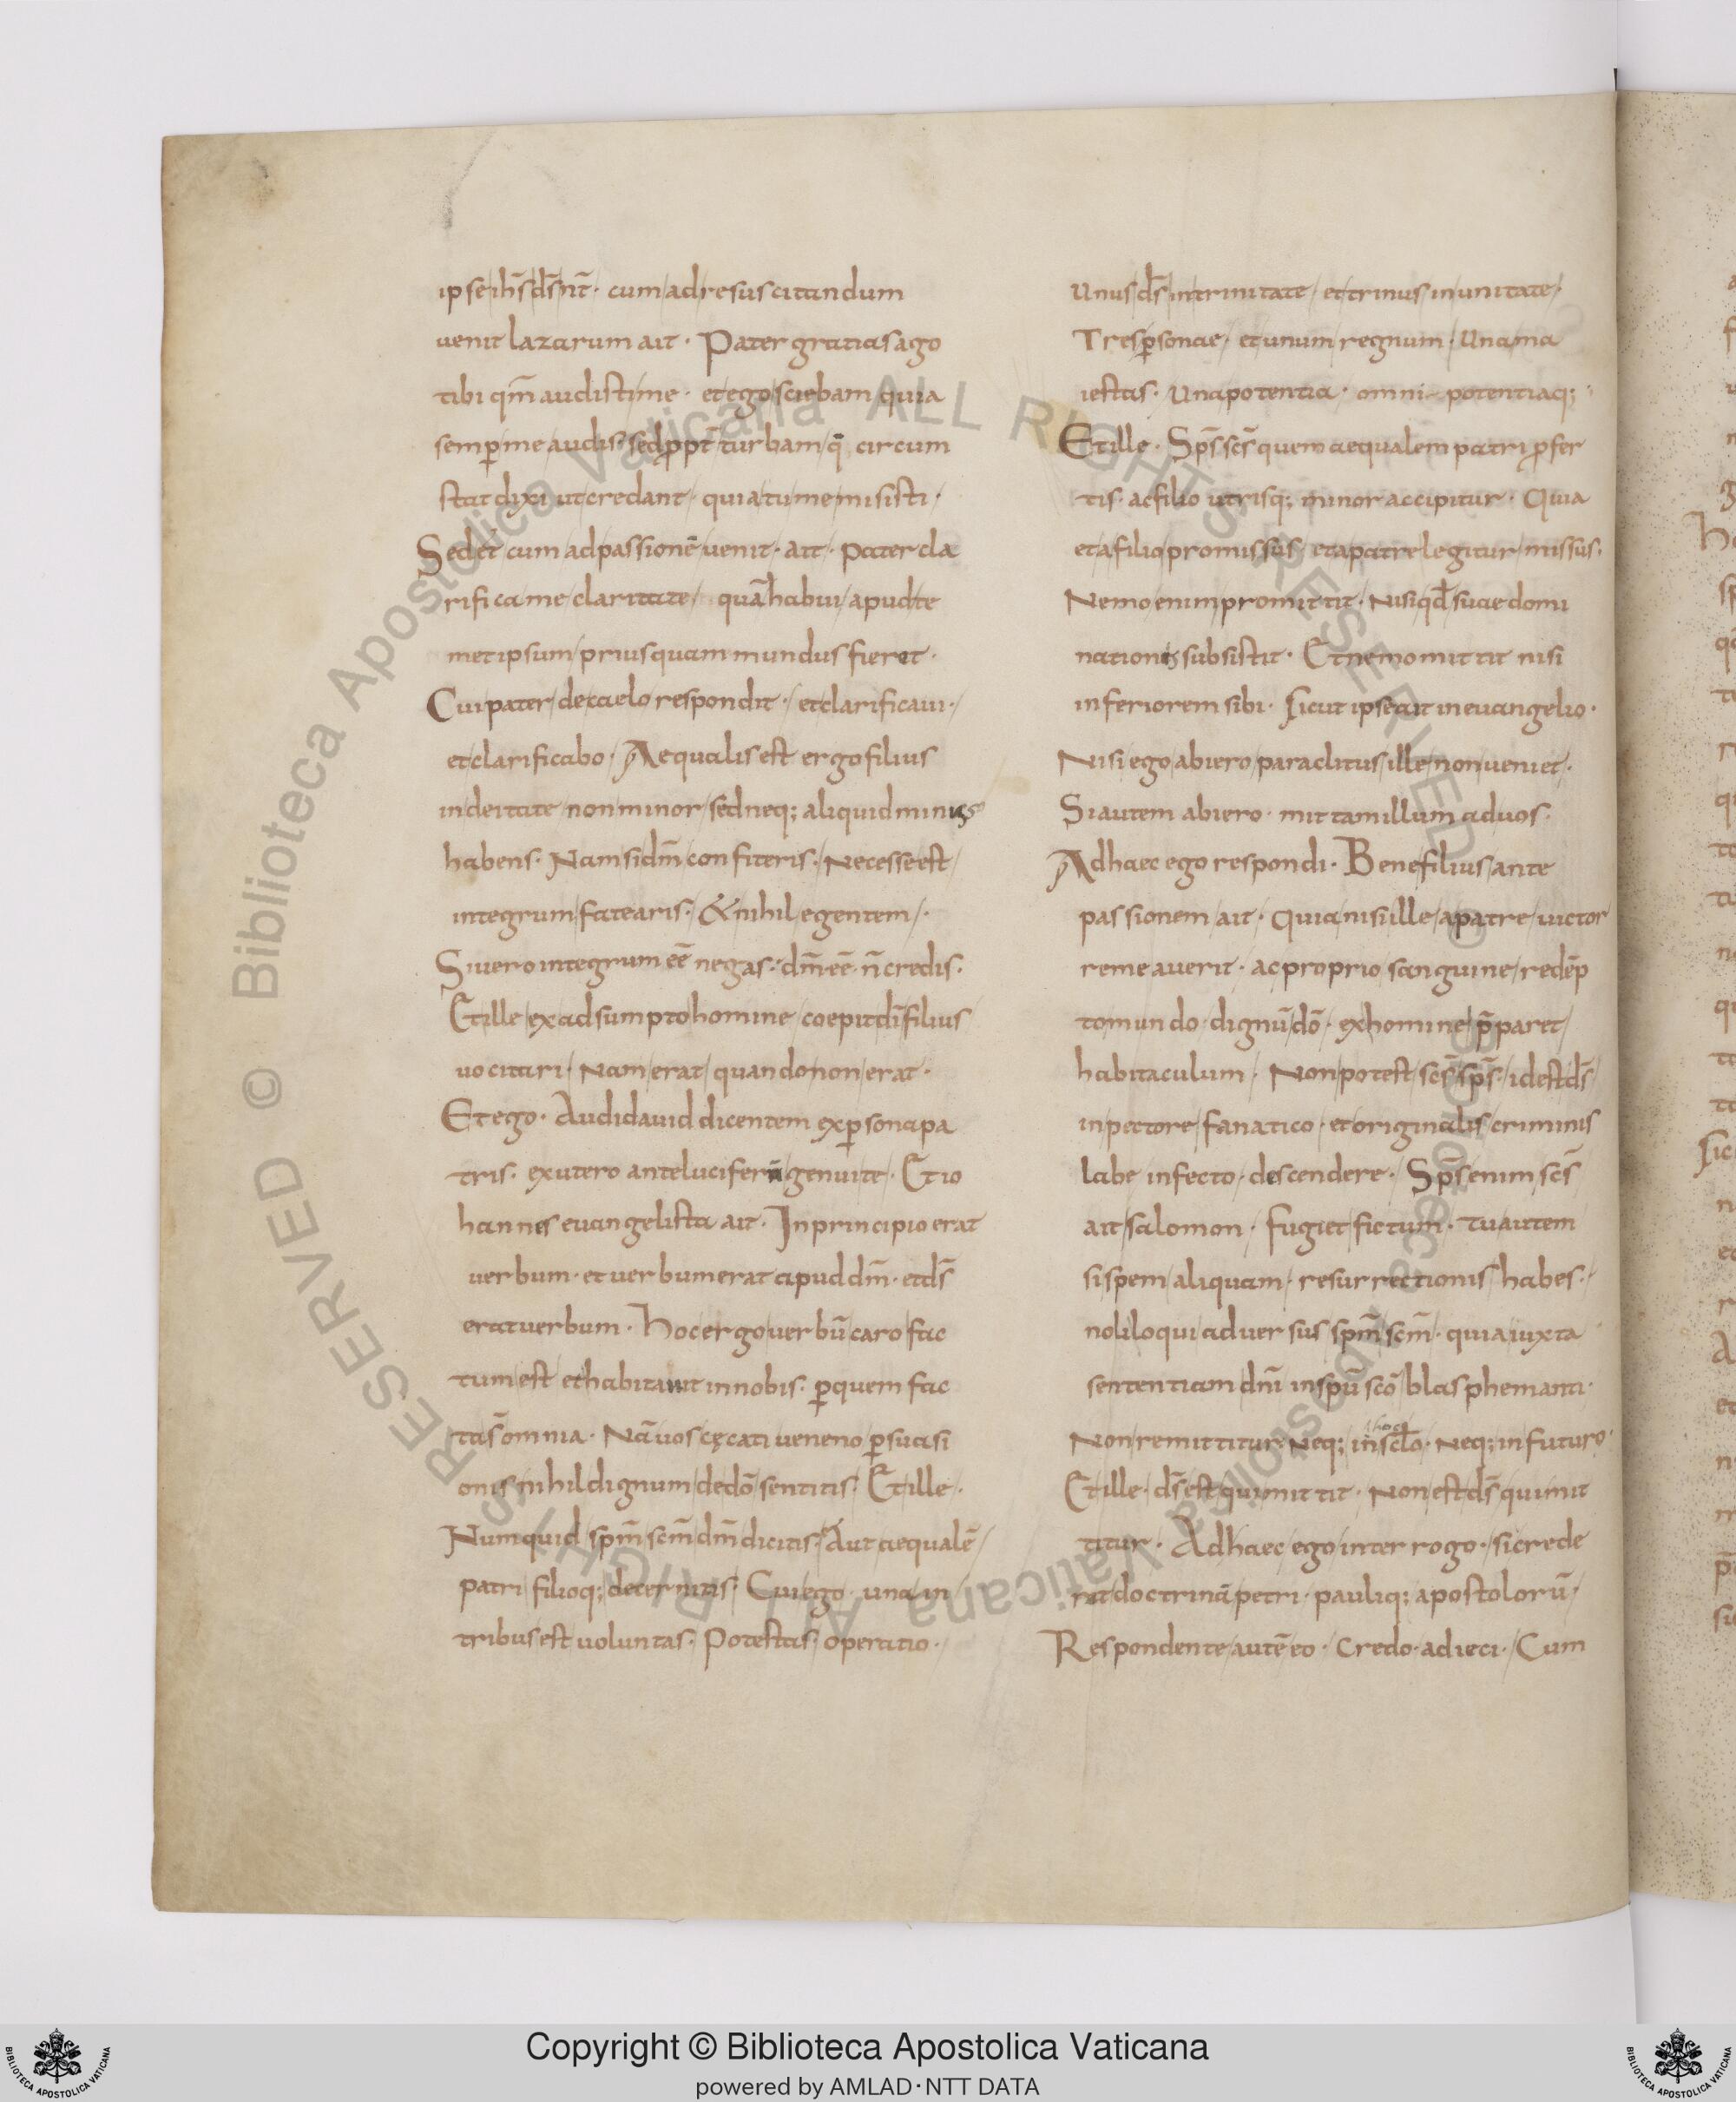 ipse ih̄s d̄s n̄t · cum ad resuscitandum
uenit lazarum ait · Pater gratias ago
tibi qm̄ audisti me · et ego sciebam quia
semp̄ me audis · sed ꝓpt̄ turbam q̄ circum
stat dixi ut credant · quia tu me misisti ·
Sed et cum ad passionē uenit · ait · pater cla
rifica me claritate quā habui apud te
metipsum prius quam mundus fieret ·
Cui pater de caelo respondit · et clarificaui ·
et clarificabo · Aequalis est ergo filius
in deitate non minor sed neq; aliquid minus
habens · Nam si dm̄ confiteris · Necesse est
integrum fatearis · & nihil egentem ·
Si uero integrum eē negas · dm̄ eē n̄ credis ·
Et ille ex adsumpto homine coepit dī filius
uocitari · Nam erat quando non erat ·
Et ego · Audi dauid dicentem ex p̱sona pa
tris · ex utero ante luciferū genui te · Et io
hannes euangelista ait · In principio erat
uerbum · et uerbum erat apud dm̄ · et d̄s
erat uerbum · Hoc ergo uerbū caro fac
tum est et habitauit in nobis · p̱ quem fac
ta s̄ omnia · Nā uos cęcati ueneno p̱suasi
onis nihil dignum de dō sentitis · Et ille ·
Numquid spm̄ scm̄ dm̄ dicitis · Aut aequalē
patri filioq; decernitis · Cui ego · una in
tribus est uoluntas · Potestas · operatio ·
Unus d̄s in trinitate et trinus in unitate ·
Tres p̱sonae et unum regnum · Una ma
iestas · Una potentia · omnipotentiaq;
Et ille · Sp̄s sc̄s quem aequalem patri ꝓfer
tis · ac filio utrisq; minor accipitur · Quia
et a filio promissus et a patre legitur missus ·
Nemo enim promittit · Nisi qd̄ suae domi
nationis subsistit · Et nemo mittit nisi
inferiorem sibi · Sicut ipse ait in euangelio ·
Nisi ego abiero paraclitus ille non ueniet ·
Si autem abiero · mittam illum ad uos ·
Ad haec ego respondi · Bene filius ante
passionem ait · Quia nisi ille a patre uictor
remeauerit · ac proprio sanguine redēp
to mundo · dignū dō · ex homine p̄paret
habitaculum · Non potest sc̄s sp̄s · id est d̄s
in pectore fanatico · et originalis criminis
labe infecto · descendere · Sp̄s enim sc̄s
ait salomon · fugiet fictum · Tu autem
si spem aliquam resurrectionis habes ·
noli loqui aduersus spm̄ scm̄ · quia iuxta
sententiam dnī in spū scō blasphemanti ·
Non remittitur Neq; in hoc sc̄lo · Neq; in futuro ·
Et ille · d̄s est qui mittit · Non est d̄s qui mit
titur · Ad haec ego interrogo · si crede
ret doctrinā petri · pauliq; apostolorū ·
Respondente autē eo · Credo · adieci · Cum
© Biblioteca Apostolica Vaticana ALL RIGHTS RESERVED
Copyright © Biblioteca Apostolica Vaticana
powered by AMLAD·NTT DATA
BIBLIOTECA APOSTOLICA VATICANA
BIBLIOTECA APOSTOLICA VATICANA